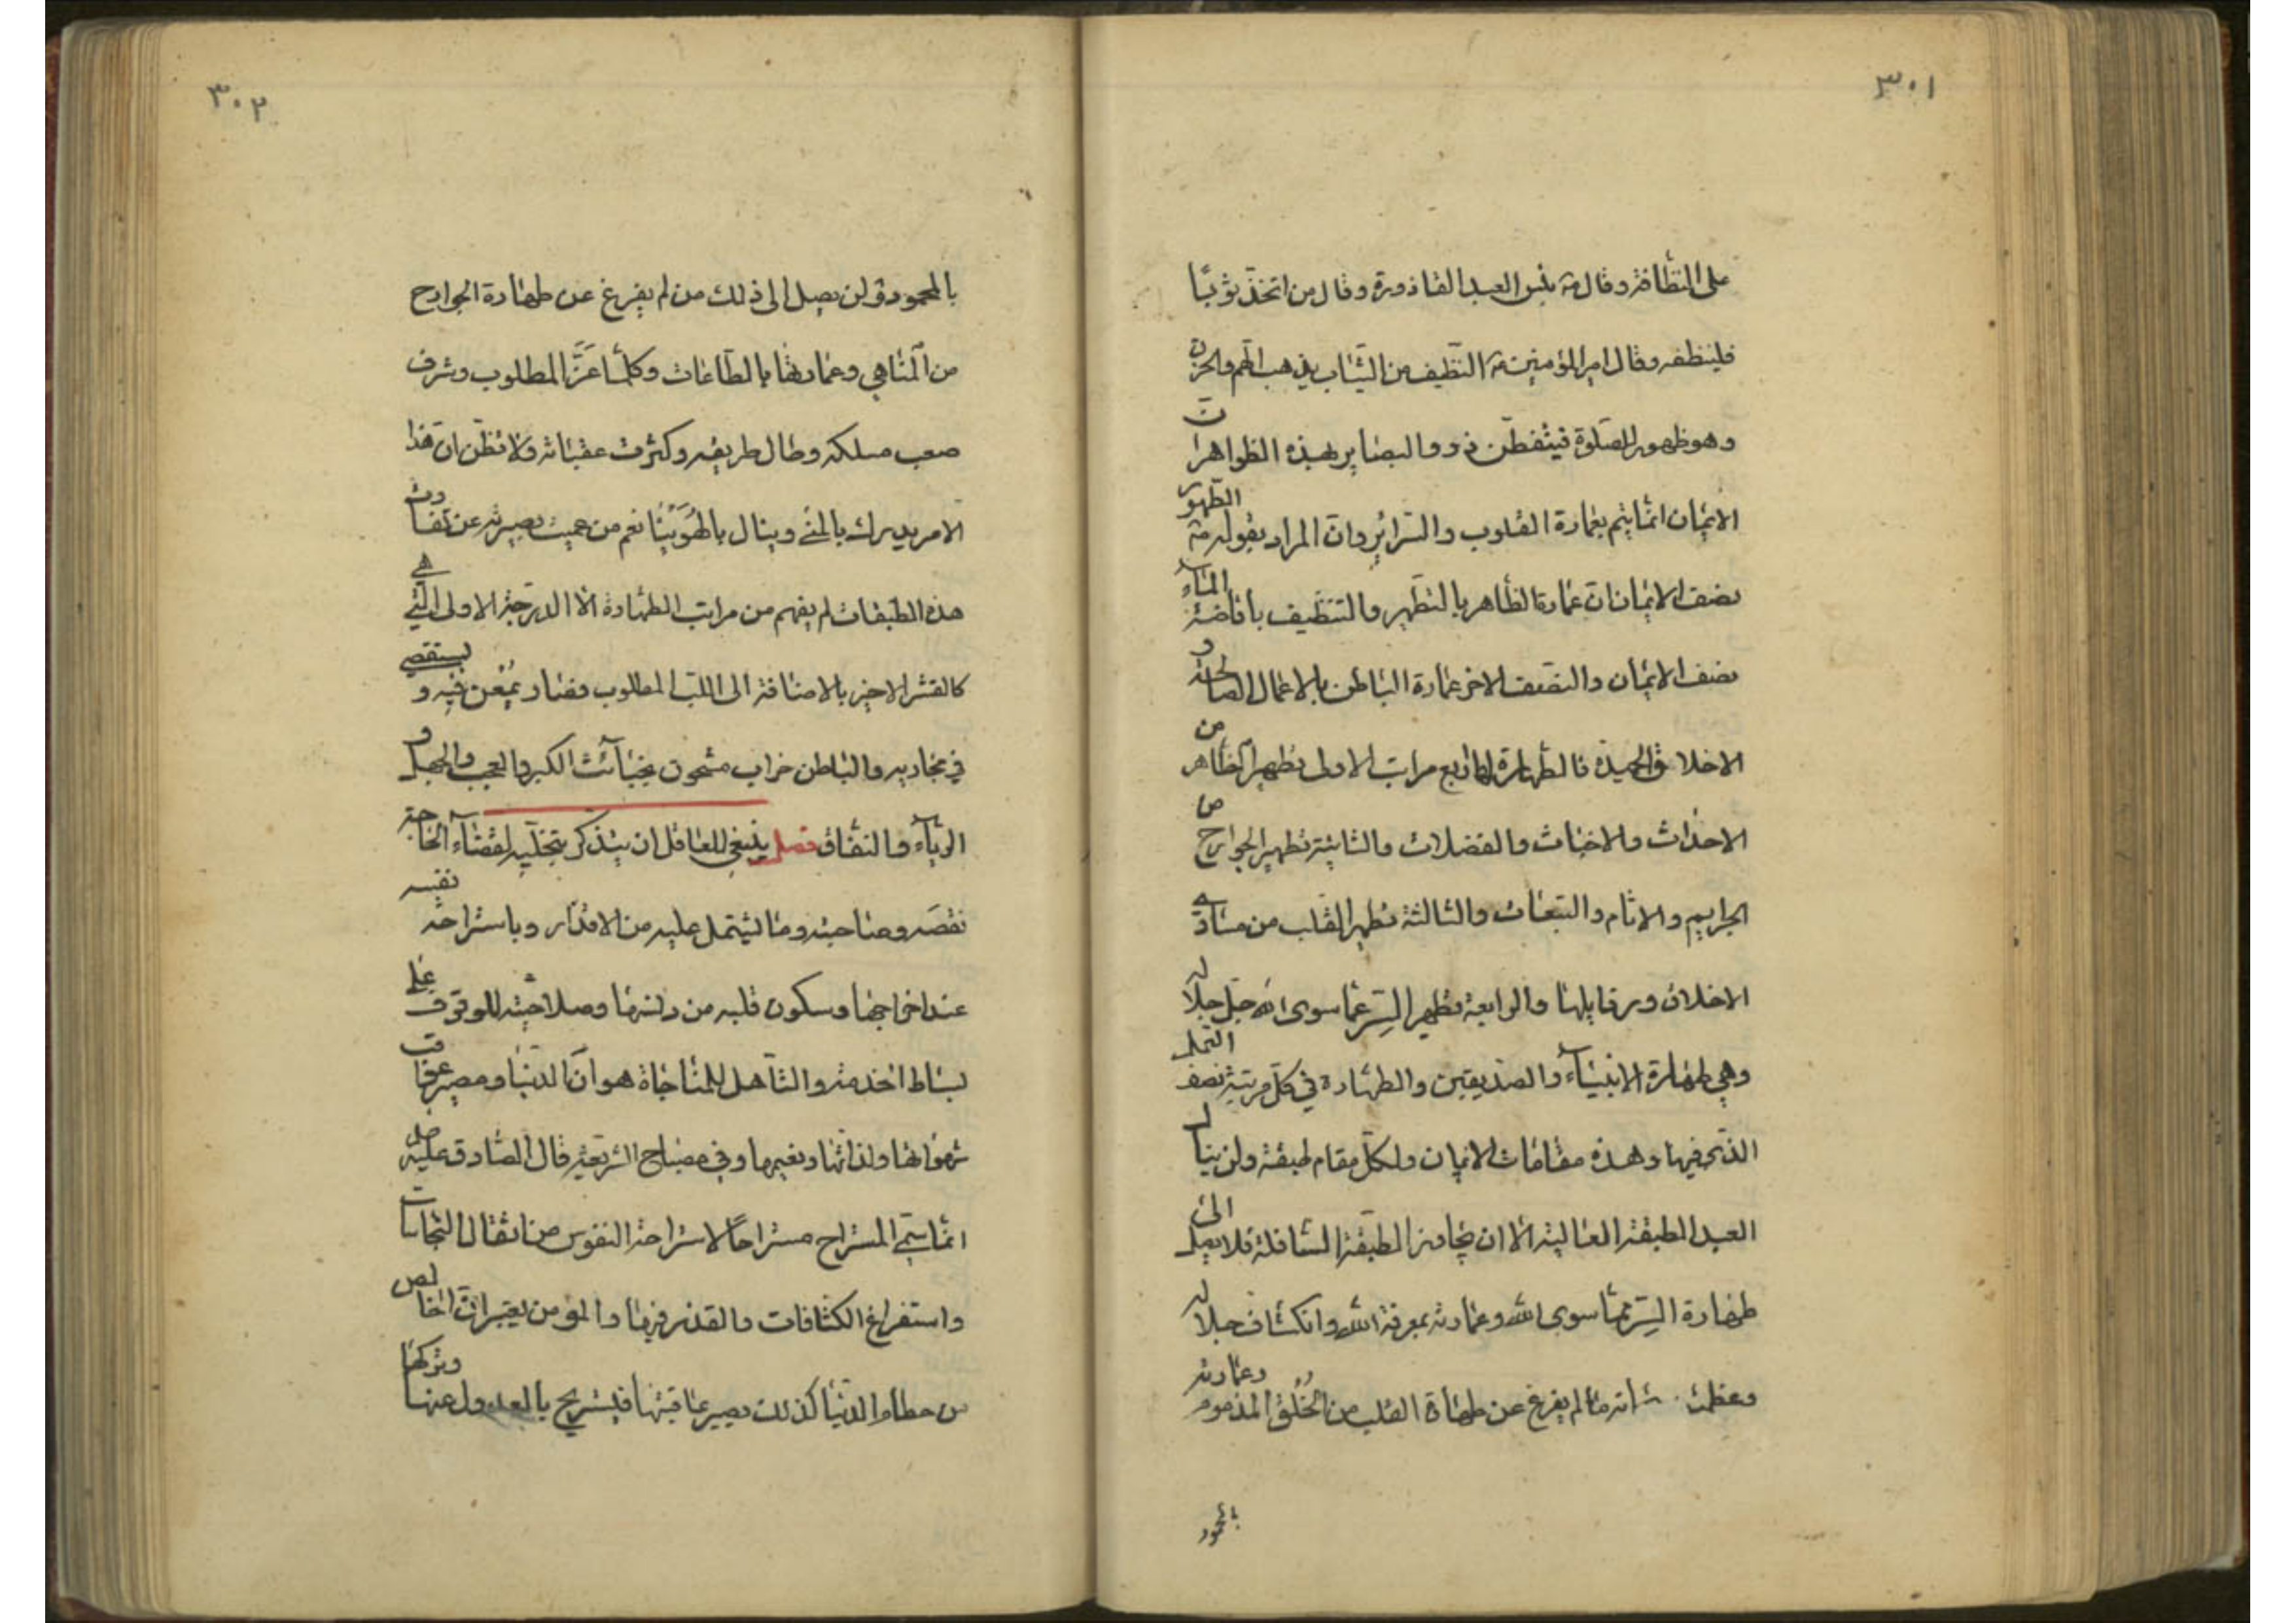 ٣٠١
على النظافة وقال ص بئس العبد القاذورة وقال من اتخذ ثوبًا
فلينظفه وقال امير المؤمنين ع النظيف من الثياب يذهب الهم والحزن
وهو طهور للصلوة فيتفطن ذووا البصاير بهذه الظواهر ان
الايمان انما يتم بعمارة القلوب والسرائر وان المراد بقوله ص الطهور
نصف الايمان ان عمارة الظاهر بالتطهير والتنظيف بافاضة الماء
نصف الايمان والنصف الاخر عمارة الباطن بالاعمال الصالحة و
الاخلاق الحميدة فالطهارة لها اربع مراتب الاولى تطهير الظاهر من
الاحداث والاخباث والفضلات والثانية تطهير الجوارح من
الجرايم والاثام والتبعات والثالثة تطهير القلب من مساوي
الاخلاق ورذايلها والرابعة تطهير السر عما سوى الله جل جلاله
وهي طهارة الانبياء والصديقين والطهارة في كل مرتبة نصف العمل
الذي فيها وهذه مقامات الايمان ولكل مقام طبقة ولن ينال
العبد الطبقة العالية الا ان يجاوز الطبقة السافلة فلا يصل الى
طهارة السر عما سوى الله وعمارته بمعرفة الله وانكشاف جلاله
وعظمته ما لم يفرغ عن طهارة القلب من الخلق المذموم وعمارته
بالمحمود
٣٠٢
بالمحمود ولن يصل الى ذلك من لم يفرغ عن طهارة الجوارح
من المناهي وعمارتها بالطاعات وكلما عَزَّ المطلوب وشرف
صعب مسلكه وطال طريقه وكثرت عقباته ولا تظن ان هذا
الامر يدرك بالمنى وينال بالهُوَيْنا نعم من عميت بصيرته عن تفاوت
هذه الطبقات لم يفهم من مراتب الطهارة الا الدرجة الاولى التي هي
كالقشر الاخير بالاضافة الى اللب المطلوب فصار يُمعن فيه و يستقصي
في مجاريه والباطن خراب مشحون بخبائث الكبر والعجب والجهل و
الرياء والنفاق فصل ينبغي للعاقل ان يتذكر بتخليه لقضاء الحاجة
نقصه وحاجته وما يشتمل عليه من الاقذار وباستراحة نفسه
عند اخراجها وسكون قلبه من دنسها وصلاحيته للوقوف على
بساط الخدمة والتاهل للمناجاة هو ان الدنيا ومصير عواقب
شهواتها ولذاتها ونعيمها وفي مصباح الشريعة قال الصادق عليه
انما سمي المستراح مستراحًا لاستراحة النفوس من اثقال النجاسات
واستفراغ الكثافات والقذر فيها والمؤمن يعتبر ان الخالص
من حطام الدنيا كذلك يصير عاقبتها فيستريح بالعدول عنها وتركها